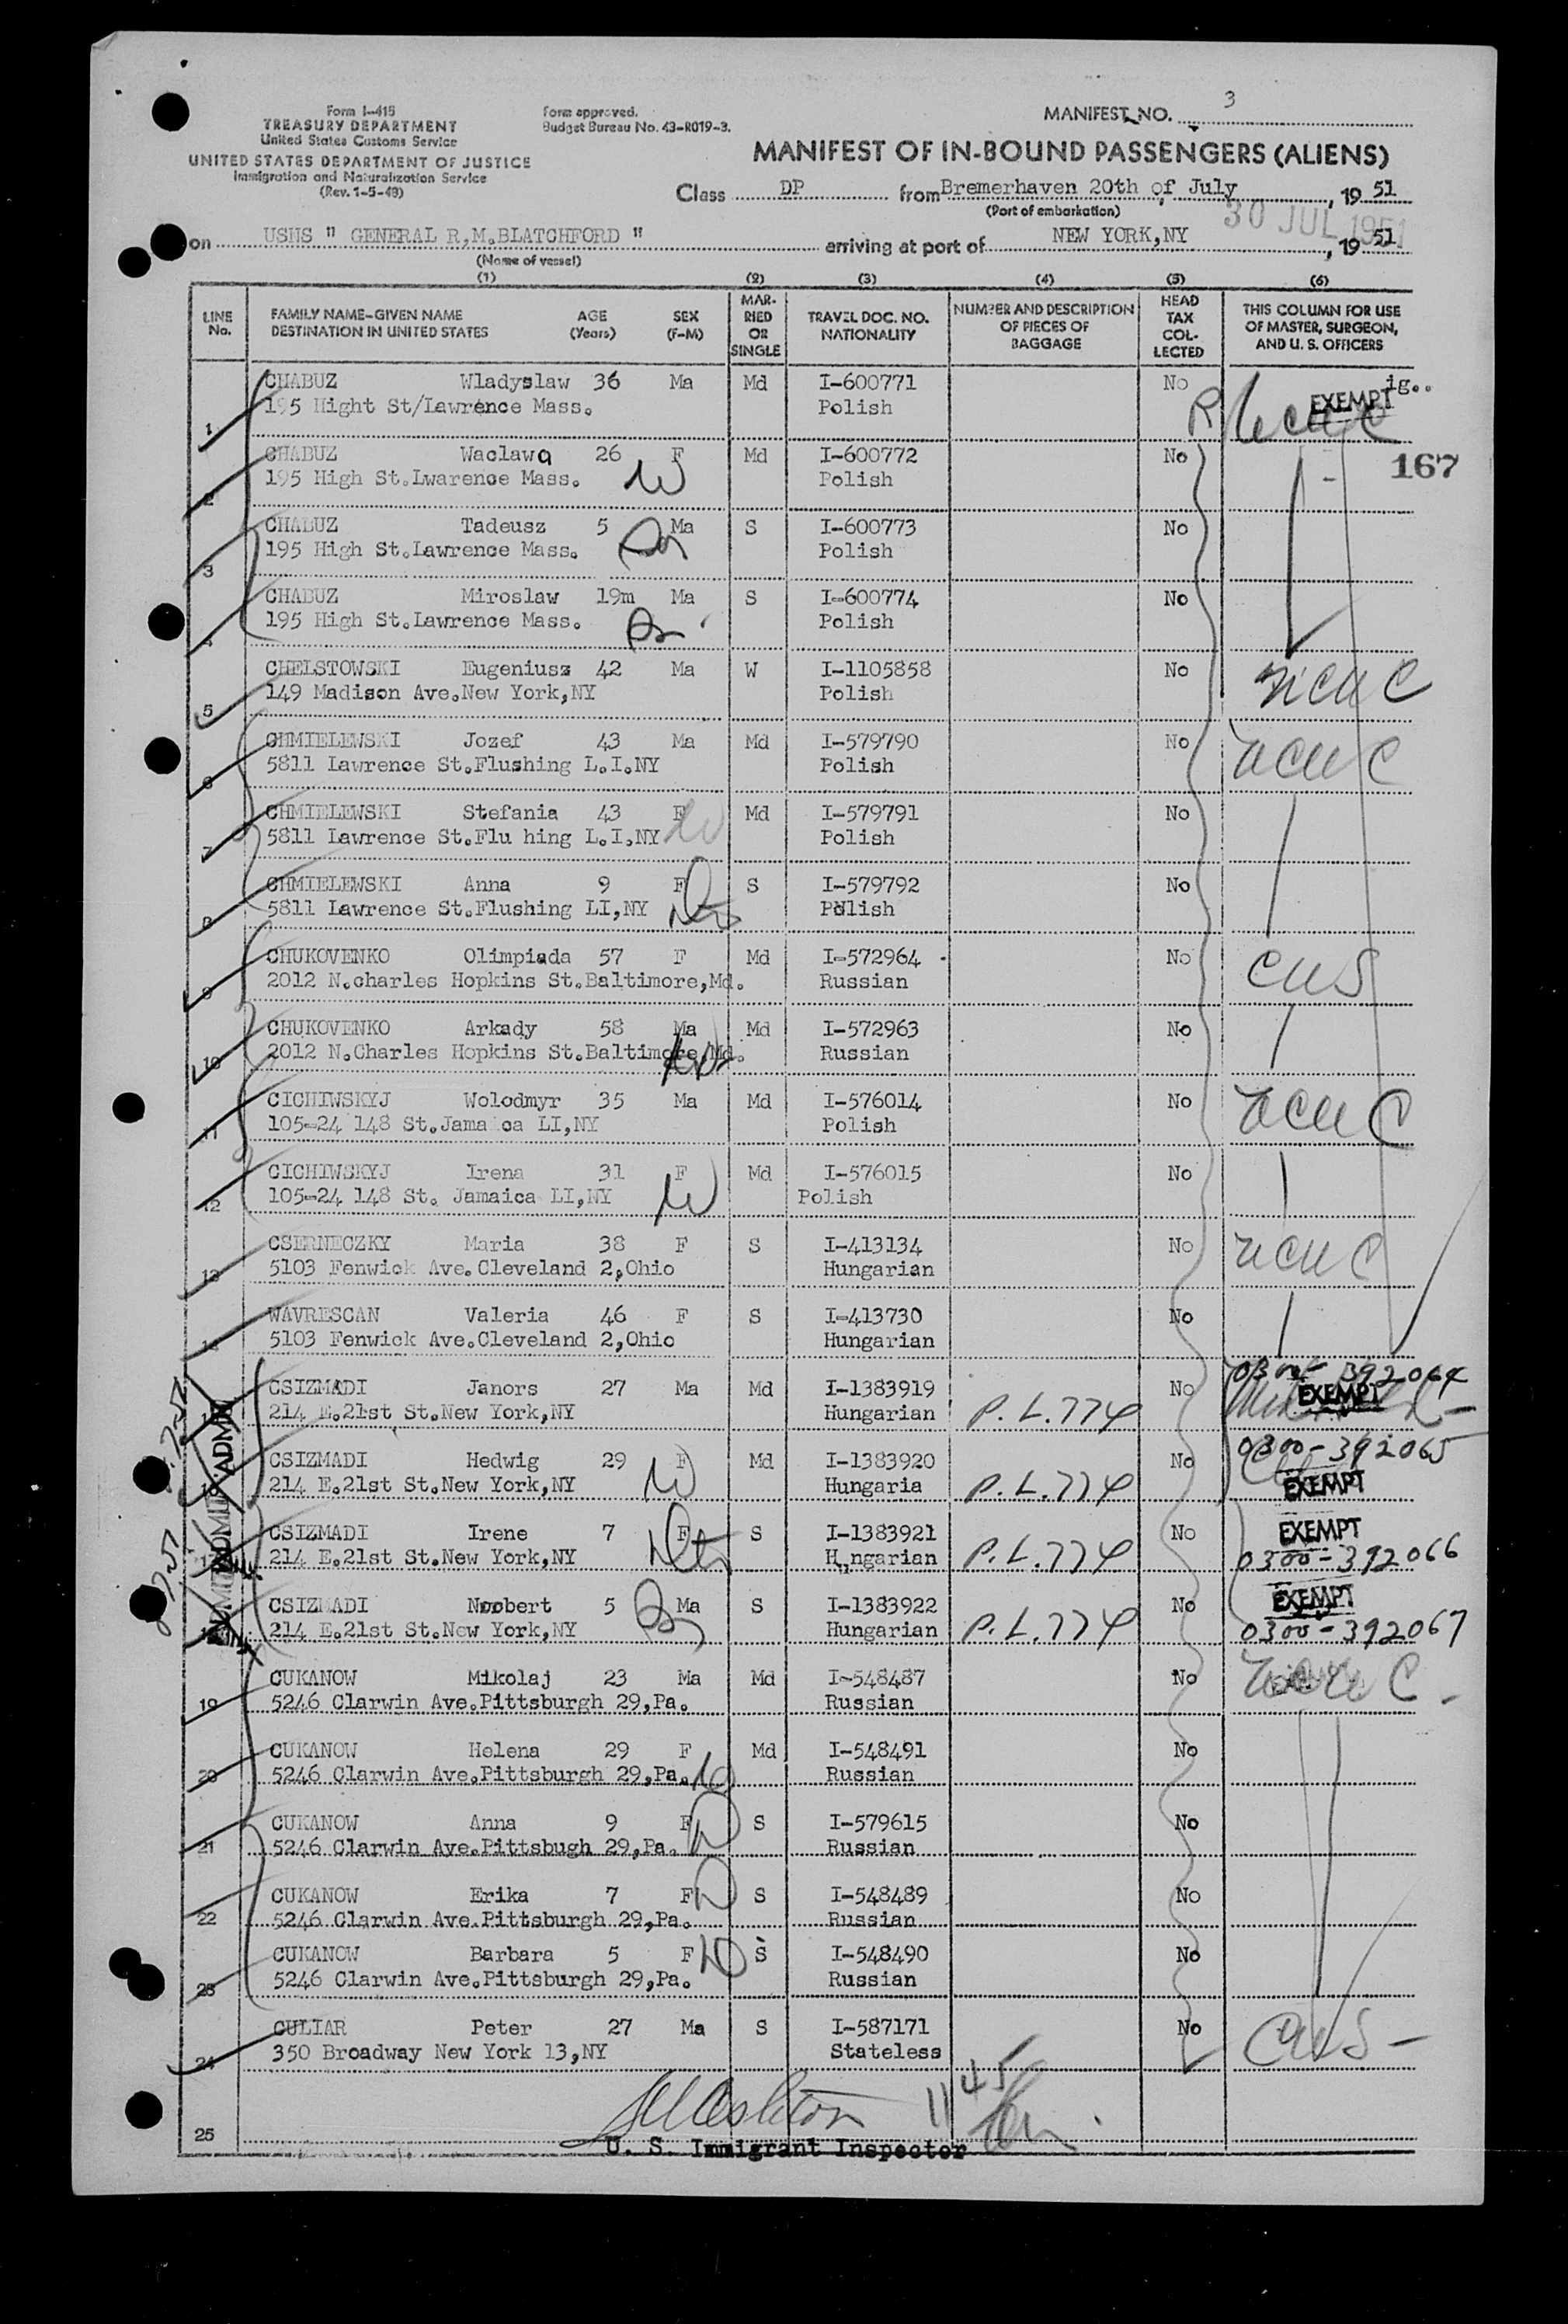 Form I-415
TREASURY DEPARTMENT
United States Customs Service
UNITED STATES DEPARTMENT OF JUSTICE
Immigration and Naturalization Service
(Rev. 1-5-49)
Form approved.
Budget Bureau No. 43-R019-3.
MANIFEST NO. 3
MANIFEST OF IN-BOUND PASSENGERS (ALIENS)
Class DP from Bremerhaven 20th of July, 19 51
(Port of embarkation)
30 JUL 1951
on USNS " GENERAL R,M.BLATCHFORD " arriving at port of NEW YORK,NY, 19 51
(Name of vessel)
(1) (2) (3) (4) (5) (6)
LINE No. FAMILY NAME-GIVEN NAME DESTINATION IN UNITED STATES AGE (Years) SEX (F-M) MARRIED OR SINGLE TRAVEL DOC. NO. NATIONALITY NUMBER AND DESCRIPTION OF PIECES OF BAGGAGE HEAD TAX COLLECTED THIS COLUMN FOR USE OF MASTER, SURGEON, AND U. S. OFFICERS
1 CHABUZ Wladyslaw 36 Ma Md I-600771 No ig..
195 Hight St/Lawrence Mass. Polish EXEMPT
167
2 CHABUZ Waclawa 26 F Md I-600772 No
195 High St.Lwarence Mass. W Polish
3 CHABUZ Tadeusz 5 Ma S I-600773 No
195 High St.Lawrence Mass. Polish
4 CHABUZ Miroslaw 19m Ma S I-600774 No
195 High St.Lawrence Mass. Polish
5 CHELSTOWSKI Eugeniusz 42 Ma W I-1105858 No
149 Madison Ave.New York,NY Polish
NCWC
6 CHMIELEWSKI Jozef 43 Ma Md I-579790 No
5811 Lawrence St.Flushing L.I.NY Polish
NCWC
7 CHMIELEWSKI Stefania 43 F Md I-579791 No
5811 Lawrence St.Flu hing L.I,NY W Polish
8 CHMIELEWSKI Anna 9 F S I-579792 No
5811 Lawrence St.Flushing LI,NY Polish
9 CHUKOVENKO Olimpiada 57 F Md I-572964 No
2012 N.charles Hopkins St.Baltimore,Md. Russian
CWS
10 CHUKOVENKO Arkady 58 Ma Md I-572963 No
2012 N.Charles Hopkins St.Baltimore,Md. Russian
11 CICHIWSKYJ Wolodmyr 35 Ma Md I-576014 No
105-24 148 St.Jama ca LI,NY Polish
NCWC
12 CICHIWSKYJ Irena 31 F Md I-576015 No
105-24 148 St. Jamaica LI,NY W Polish
13 CSERNECZKY Maria 38 F S I-413134 No
5103 Fenwick Ave.Cleveland 2,Ohio Hungarian
NCWC
14 WAVRESCAN Valeria 46 F S I-413730 No
5103 Fenwick Ave.Cleveland 2,Ohio Hungarian
15 CSIZMADI Janors 27 Ma Md I-1383919 No 0300-392064
214 E.21st St.New York,NY Hungarian P.L.774 EXEMPT
16 CSIZMADI Hedwig 29 F Md I-1383920 No 0300-392065
214 E.21st St.New York,NY W Hungaria P.L.774 EXEMPT
17 CSIZMADI Irene 7 F S I-1383921 No EXEMPT
214 E.21st St.New York,NY Hungarian P.L.774 0300-392066
18 CSIZMADI Norbert 5 Ma S I-1383922 No EXEMPT
214 E.21st St.New York,NY Hungarian P.L.774 0300-392067
19 CUKANOW Mikolaj 23 Ma Md I-548487 No
5246 Clarwin Ave.Pittsburgh 29,Pa. Russian
20 CUKANOW Helena 29 F Md I-548491 No
5246 Clarwin Ave.Pittsburgh 29,Pa. W Russian
21 CUKANOW Anna 9 F S I-579615 No
5246 Clarwin Ave.Pittsbugh 29,Pa. D Russian
22 CUKANOW Erika 7 F D S I-548489 No
5246 Clarwin Ave.Pittsburgh 29,Pa. Russian
23 CUKANOW Barbara 5 F D S I-548490 No
5246 Clarwin Ave.Pittsburgh 29,Pa. Russian
24 CULIAR Peter 27 Ma S I-587171 No
350 Broadway New York 13,NY Stateless
CWS
1145
25
U. S. Immigrant Inspector